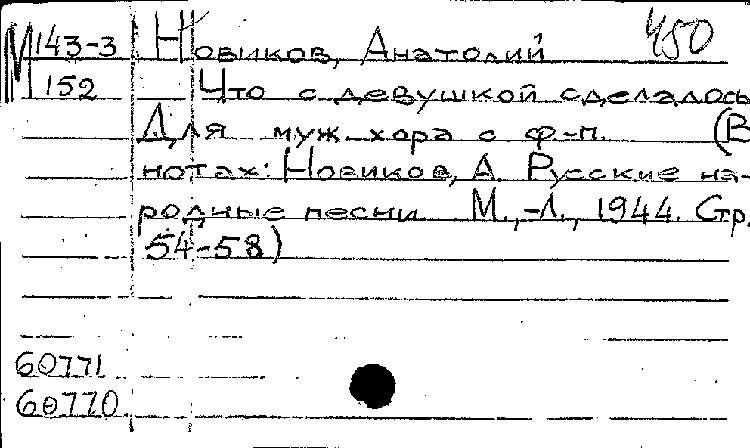 М 143-3 Новиков, Анатолий 450
152 Что с девушкой сделалось
Для муж. хора с ф-п. (В
нотах: Новиков, А. Русские на-
родные песни. М.,-Л., 1944. Стр.
54-58)
60771
60770